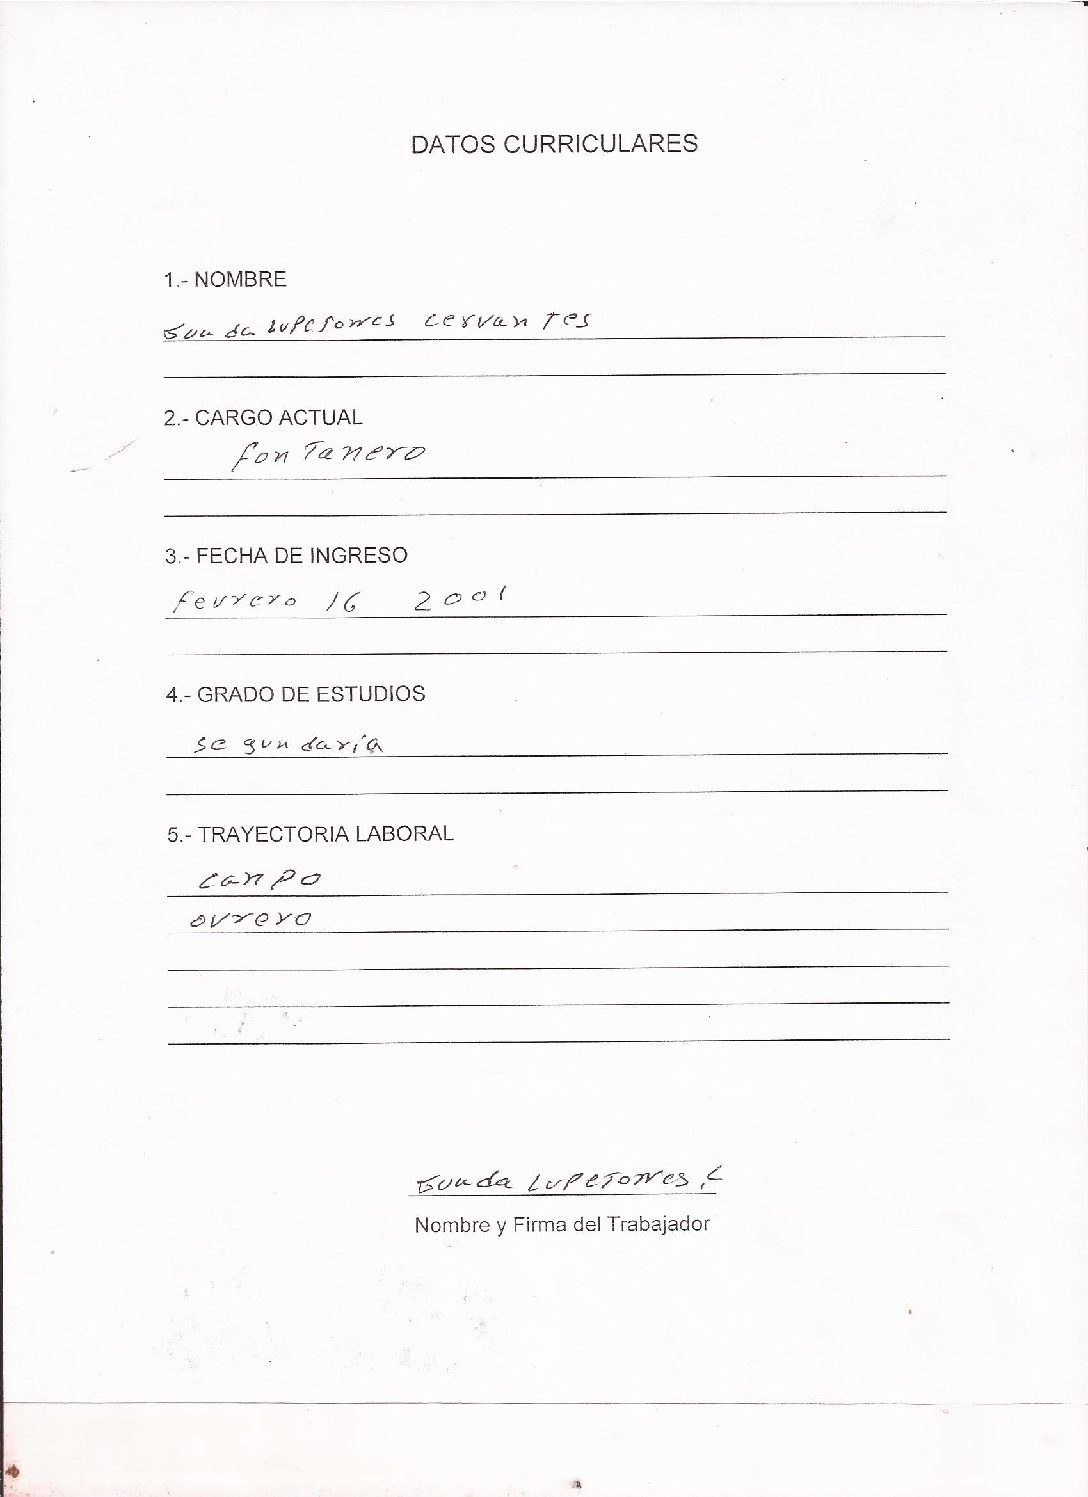 DATOS CURRICULARES
1.- NOMBRE
Guada Lupe Torres Cervantes
2.- CARGO ACTUAL
fontanero
3.- FECHA DE INGRESO
fevrero 16 2001
4.- GRADO DE ESTUDIOS
segundaria
5.- TRAYECTORIA LABORAL
canpo
ovrero
Guada Lupe Torres C
Nombre y Firma del Trabajador